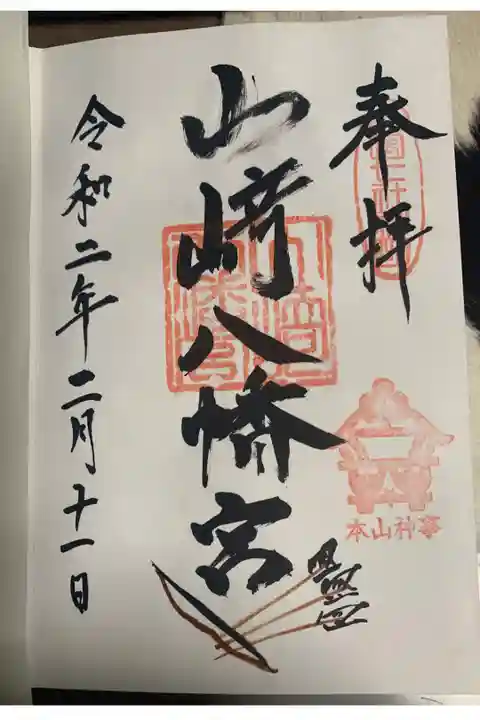 奉拝
山﨑八幡宮
令和二年二月十一日
本山神事